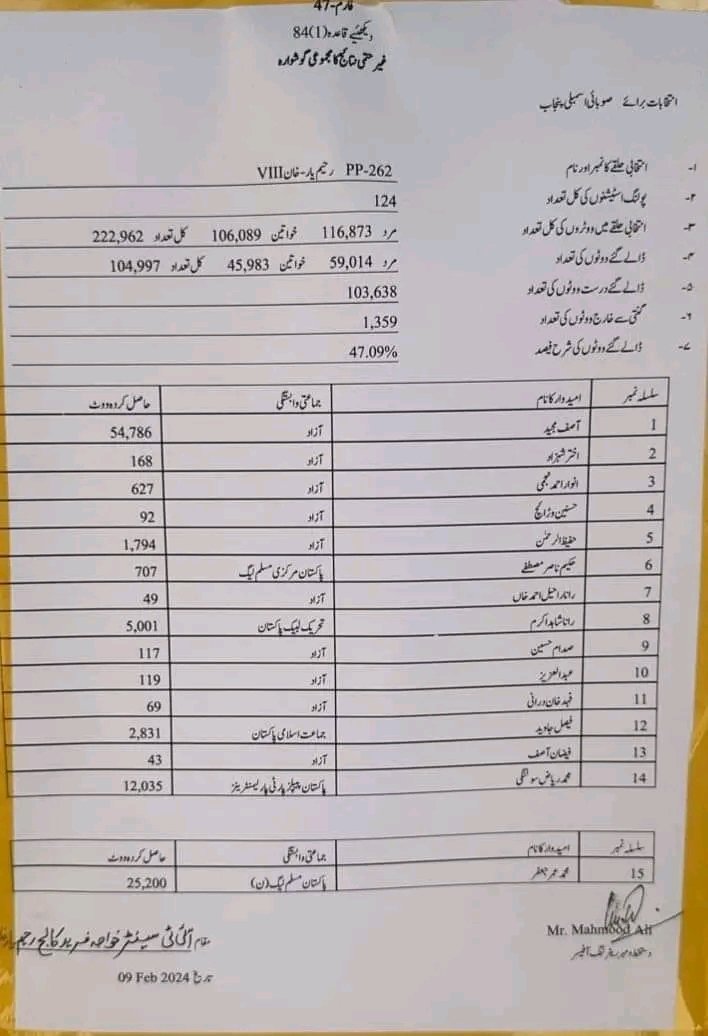 فارم-47
دیکھئیے قاعدہ (1)84
غیر حتمی نتائج کا مجموعی گوشوارہ
انتخابات برائے صوبائی اسمبلی پنجاب
۱- انتخابی حلقے کا نمبر اور نام PP-262 رحیم یار-خان VIII
۲- پولنگ اسٹیشنوں کی کل تعداد 124
۳- انتخابی حلقے میں ووٹروں کی کل تعداد مرد 116,873 خواتین 106,089 کل تعداد 222,962
۴- ڈالے گئے ووٹوں کی تعداد مرد 59,014 خواتین 45,983 کل تعداد 104,997
۵- ڈالے گئے درست ووٹوں کی تعداد 103,638
۶- گنتی سے خارج ووٹوں کی تعداد 1,359
۷- ڈالے گئے ووٹوں کی شرح فیصد 47.09%
سلسلہ نمبر امیدوار کا نام جماعتی وابستگی حاصل کردہ ووٹ
1 آصف مجید آزاد 54,786
2 اختر شہزاد آزاد 168
3 انوار احمد نجمی آزاد 627
4 حسنین وڑائچ آزاد 92
5 حفیظ الرحمٰن آزاد 1,794
6 حکیم ناصر مصطفےٰ پاکستان مرکزی مسلم لیگ 707
7 رانا راحیل احمد خاں آزاد 49
8 رانا شاہد اکرم تحریک لبیک پاکستان 5,001
9 صدام حسین آزاد 117
10 عبدالعزیز آزاد 119
11 فہد خان درانی آزاد 69
12 فیصل جاوید جماعت اسلامی پاکستان 2,831
13 فیضان آصف آزاد 43
14 محمد ریاض سولنگی پاکستان پیپلز پارٹی پارلیمنٹرینز 12,035
سلسلہ نمبر امیدوار کا نام جماعتی وابستگی حاصل کردہ ووٹ
15 محمد عمر جعفر پاکستان مسلم لیگ (ن) 25,200
Mr. Mahmood Ali
دستخط و مہر ریٹرننگ آفیسر
مقام آئی ٹی سینٹر خواجہ فرید کالج رحیم
تاریخ 09 Feb 2024